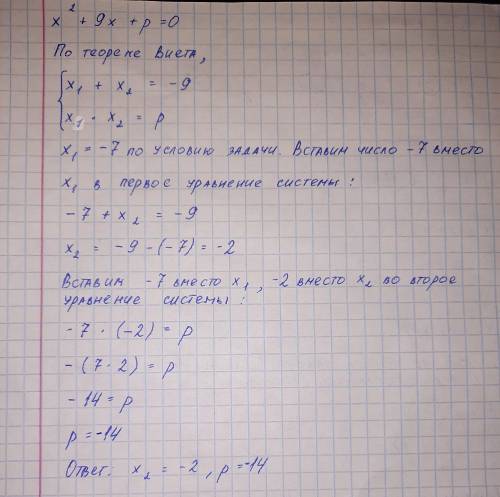 x² + 9x + p = 0
По теореме Виета,
x₁ + x₂ = -9
x₁ · x₂ = p
x₁ = -7 по условию задачи. Вставим число -7 вместо
x₁ в первое уравнение системы:
-7 + x₂ = -9
x₂ = -9 - (-7) = -2
Вставим -7 вместо x₁, -2 вместо x₂ во второе
уравнение системы:
-7 · (-2) = p
-(7 · 2) = p
-14 = p
p = -14
Ответ: x₂ = -2, p = -14